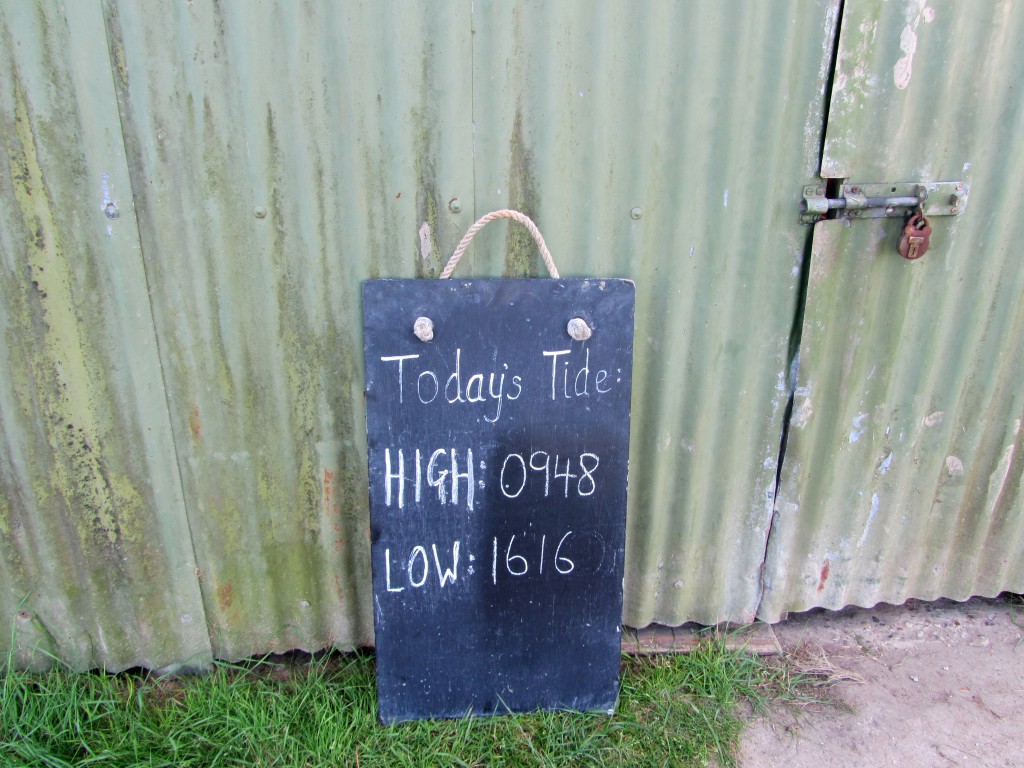 Today's Tide:
HIGH: 0948
LOW: 1616